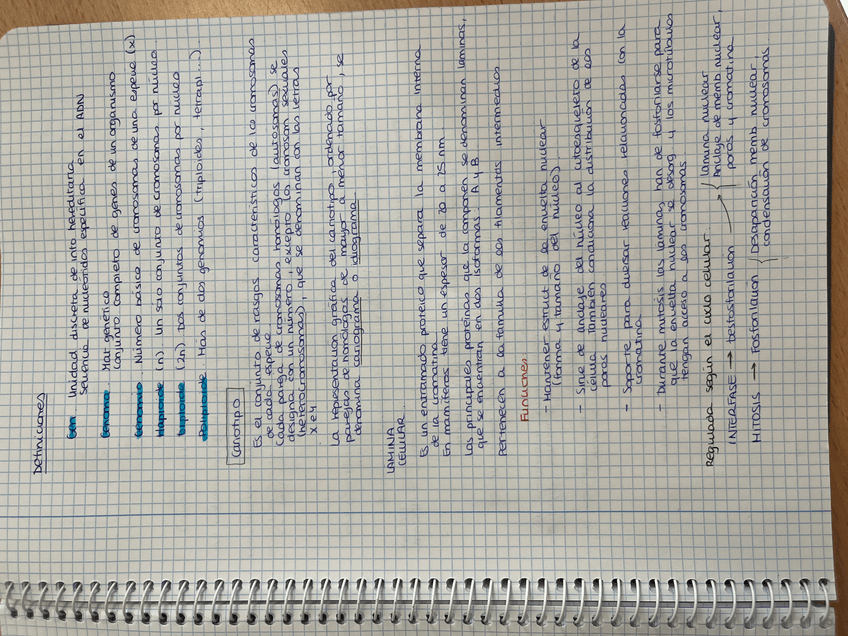 Definiciones
Gen Unidad discreta de info hereditaria
Secuencia de nucleotidos especifica en el ADN
Genoma. Mat genético
Conjunto completo de genes de un organismo
Genomio. Número básico de cromosomas de una especie (x)
Haploide (n) Un solo conjunto de cromosomas por núcleo
Diploide (2n) Dos conjuntos de cromosomas por núcleo
Poliploide Más de dos genomios (triploides, tetrapl...).
Cariotipo
Es el conjunto de rasgos característicos de los cromosomas
de cada especie.
Cada pareja de cromosomas homólogos (autosomas) se
designa con un número, excepto los cromosom sexuales
(heterocromosomas), que se denominan con las letras
X e Y
La representación gráfica del cariotipo, ordenado por
parejas de homólogos de mayor a menor tamaño, se
denomina cariograma o idiograma
LAMINA
CELULAR.
Es un entramado proteico que separa la membrana interna
de la cromatina.
En mamíferos tiene un espesor de 20 a 25 nm
Las principales proteínas que la componen se denominan láminas,
que se encuentran en dos isoformas. A y B
Pertenecen a la familia de los filamentos intermedios
Funciones
- Mantener estruct de la envuelta nuclear
(forma y tamaño del núcleo).
- Sirve de anclaje del núcleo al citoesqueleto de la
célula. También condiciona la distribución de los
poros nucleares
- Soporte para diversas reacciones relacionadas con la
cromatina.
- Durante mitosis las láminas han de fosforilarse para
que la envuelta nuclear se desorg. y los microtúbulos
tengan acceso a los cromosomas
Regulada según el ciclo celular.
INTERFASE → desfosforilación → { lámina nuclear
Anclaje de memb nuclear,
poros y cromatina
MITOSIS → Fosforilación { Desaparición memb nuclear,
condensación de cromosomas